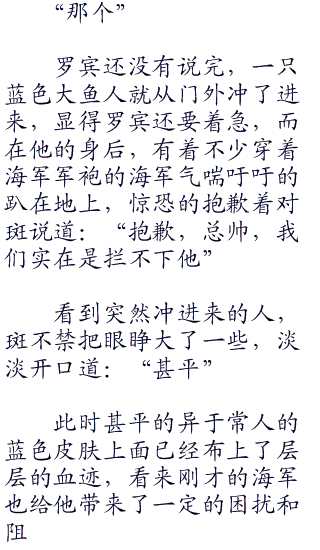 “那个”
罗宾还没有说完，一只
蓝色大鱼人就从门外冲了进
来，显得罗宾还要着急，而
在他的身后，有着不少穿着
海军军袍的海军气喘吁吁的
趴在地上，惊恐的抱歉着对
斑说道：“抱歉，总帅，我
们实在是拦不下他”
看到突然冲进来的人，
斑不禁把眼睁大了一些，淡
淡开口道：“甚平”
此时甚平的异于常人的
蓝色皮肤上面已经布上了层
层的血迹，看来刚才的海军
也给他带来了一定的困扰和
阻